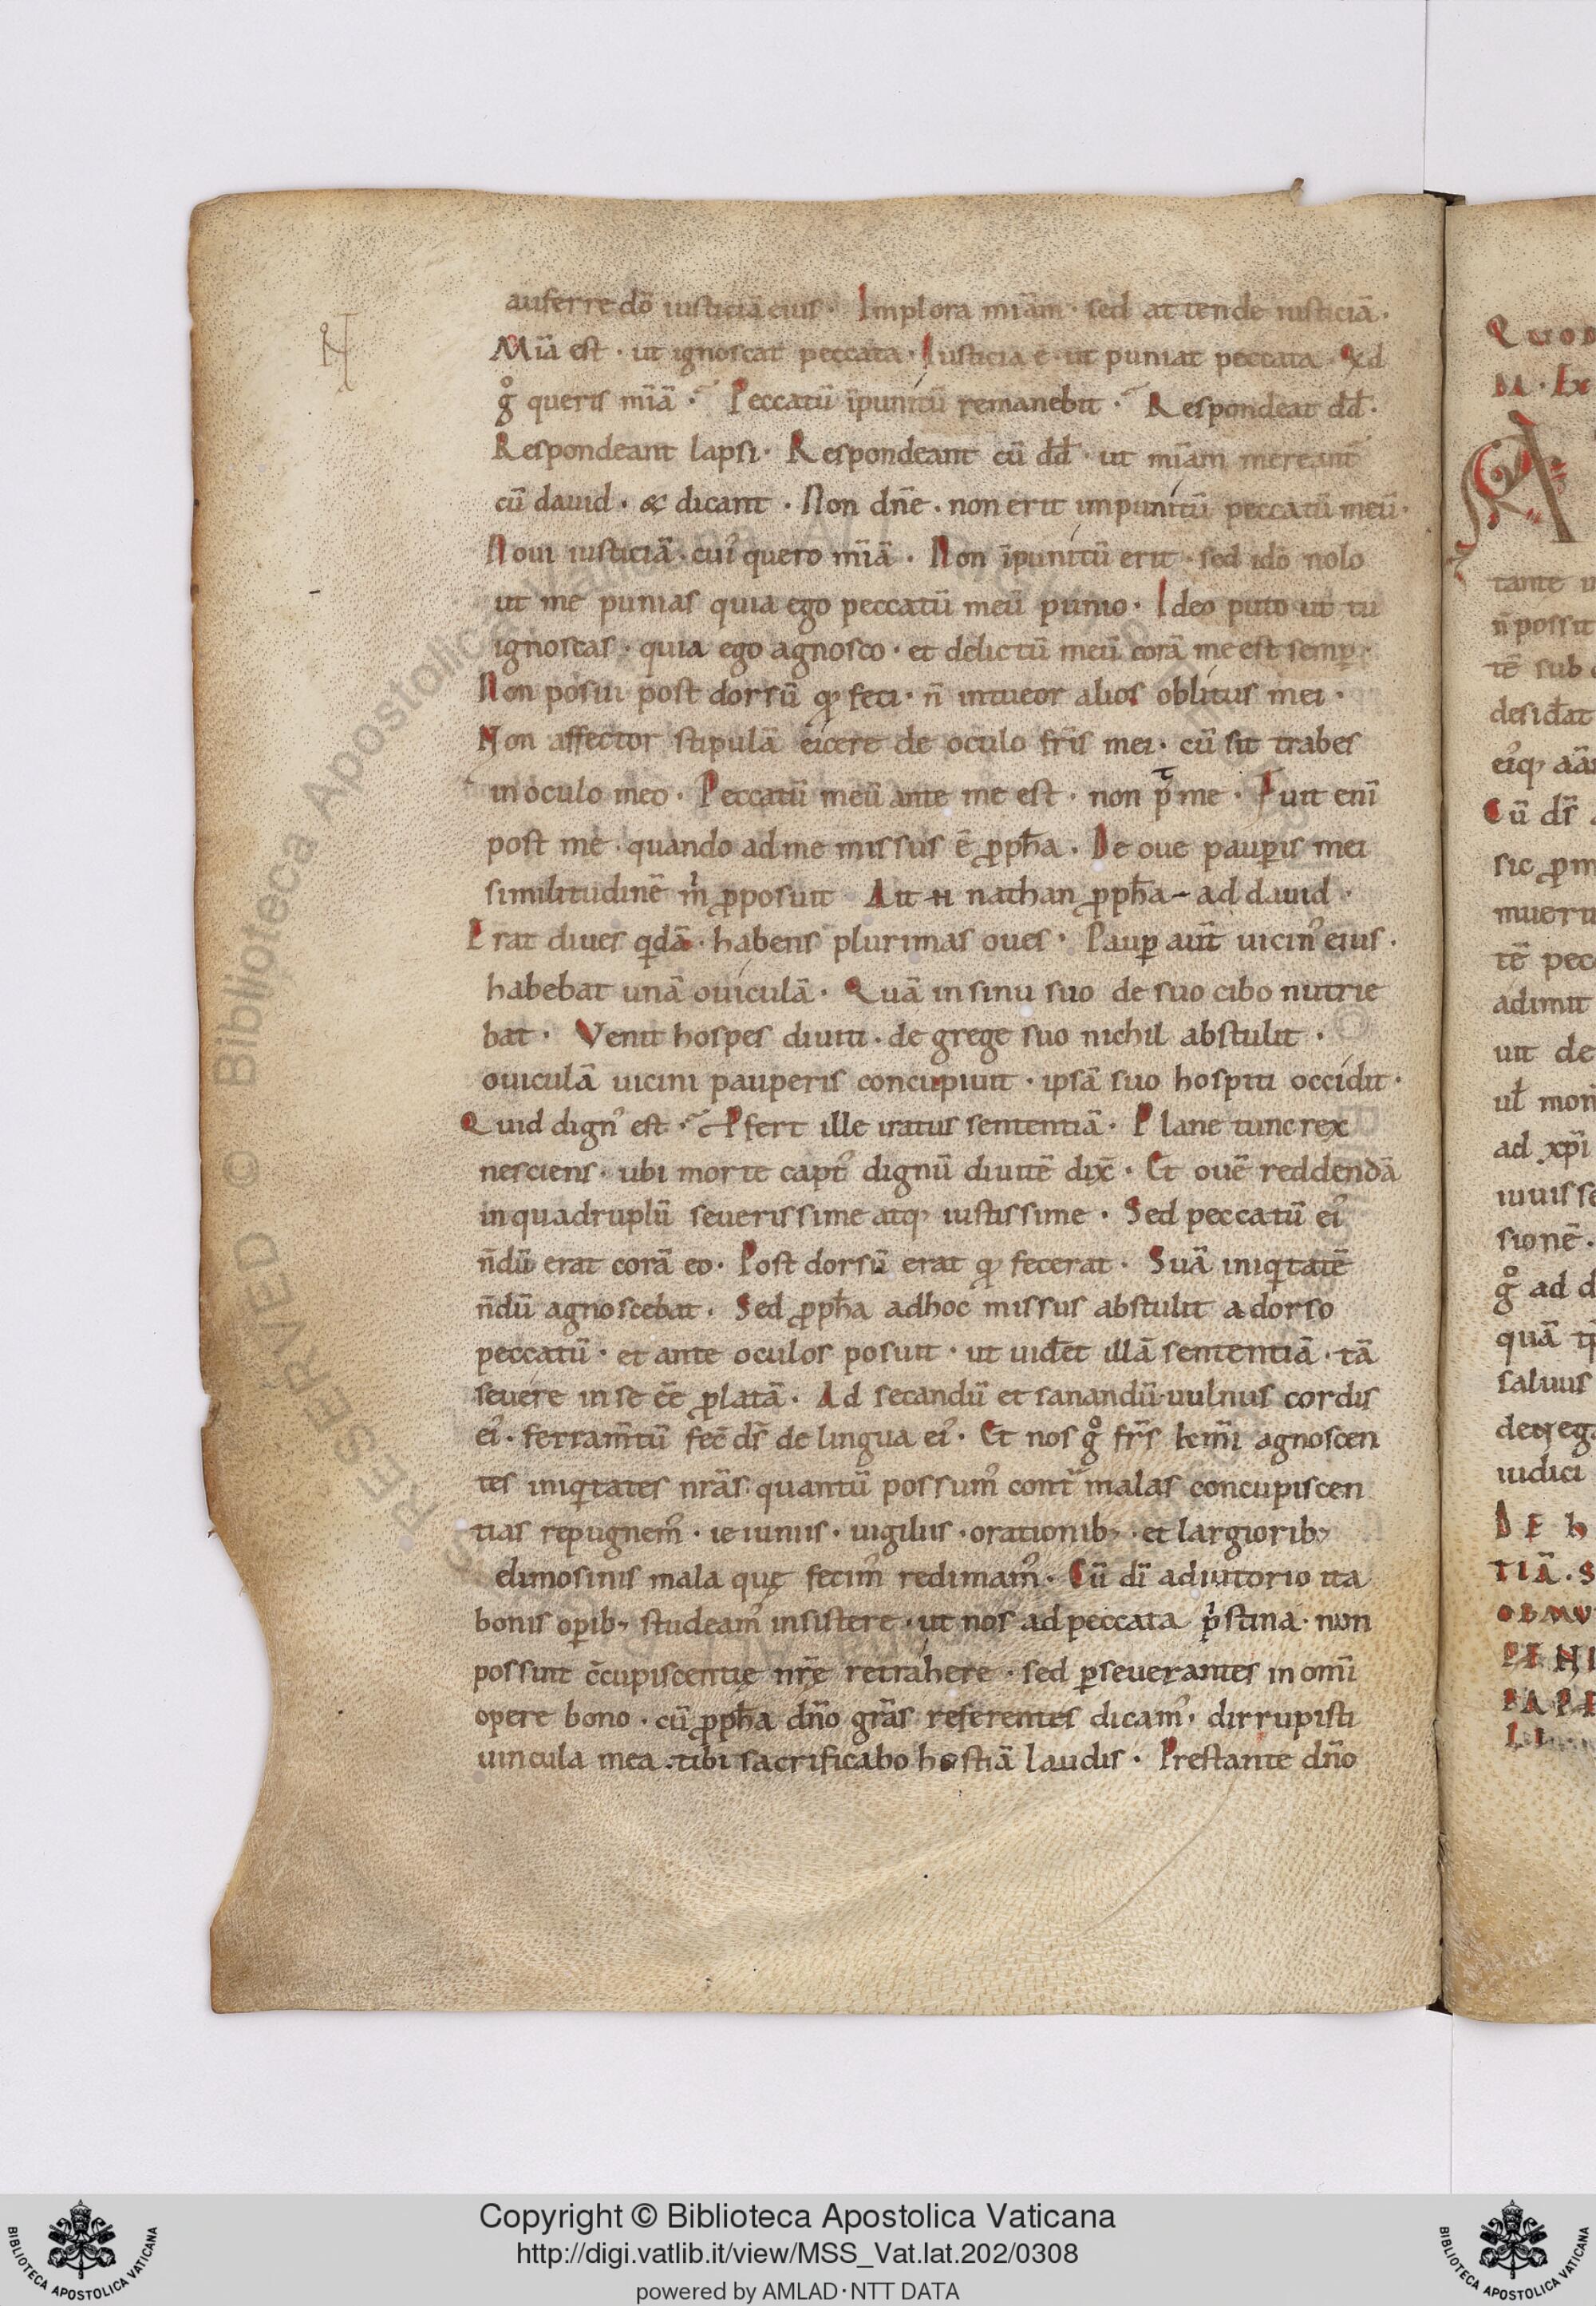 auferre dō iusticiā eius · Implora miām · sed attende iusticiā ·
Miā est · ut ignoscat peccata · Iusticia ē · ut puniat peccata · Qd
g̊ queris miā · Peccatū īpunitū remanebit · Respondeat dd̄ ·
Respondeant lapsi · Respondeant cū dd̄ · ut miām mereant̄
cū dauid · & dicant · Non dn̄e · non erit impunitū peccatū meū ·
Noui iusticiā · cui᾽ quero miā · Non īpunitū erit · sed idō nolo
ut me punias quia ego peccatū meū punio · Ideo puto ut tu
ignoscas · quia ego agnosco · et delictū meū corā me est semp̱ ·
Non posui post dorsū qđ feci · n̄ intueor alios oblitus mei ·
Non affector stipulā eicere de oculo fr̄is mei · cū sit trabes
in oculo meo · Peccatū meū ante me est · non p᷑ me · Fuit enī
post me · quando ad me missus ē ꝓph̄a · De oue paup̱is mei
similitudinē m̍ ꝓposuit Ait n̄ nathan ꝓph̄a ad dauid ·
Erat diues qͥdā · habens plurimas oues · Paup̱ aut̄ uicin᾽ eius ·
habebat unā ouiculā · Quā in sinu suo de suo cibo nutrie
bat · Venit hospes diuiti · de grege suo nichil abstulit ·
ouiculā uicini pauperis concupiuit · ipsā suo hospiti occidit ·
Quid dign᾽ est · Ꝓfert ille iratus sententiā · Plane tunc rex
nesciens · ubi morte capt᾽ dignū diuitē dix̄ · Et ouē reddendā
in quadruplū seuerissime atq; iustissime · Sed peccatū ei᾽
n̄dū erat corā eo · Post dorsū erat qđ fecerat · Suā iniqͥtatē
n̄dū agnoscebat · Sed ꝓph̄a adhoc missus abstulit a dorso
peccatū · et ante oculos posuit · ut uid̄et illā sententiā · tā
seuere in se ēe ꝓlatā · Ad secandū et sanandū uulnus cordis
ei᾽ · ferram̄tū fec̄ ds̄ de lingua ei᾽ · Et nos g̊ fr̄s km̄i agnoscen
tes iniqͥtates nr̄as quantū possum᾽ cont᷑ malas concupiscen
tias repugnem᾽ · ieiuniis · uigiliis · orationib; · et largiorib;
elimosinis mala quę fecim᾽ redimam᾽ · Cū dī adiutorio ita
bonis op̱ib; studeam᾽ insistere · ut nos ad peccata p̍stina · non
possint c̄cupiscentię nr̄ę retrahere · sed p̱seuerantes in omī
opere bono · cū ꝓph̄a dn̄o gr̄as referentes dicam᾽ · dirrupisti
uincula mea · tibi sacrificabo hostiā laudis · Prestante dn̄o
tante
n̄ possit
tē sub
desid̄at
sic ꝓm
tē pec
adimit
uit de
ul̄ mon
ad xp̄i
sionē ·
g̊ ad d
saluus
iudici
Copyright © Biblioteca Apostolica Vaticana
http://digi.vatlib.it/view/MSS_Vat.lat.202/0308
powered by AMLAD·NTT DATA
BIBLIOTECA APOSTOLICA VATICANA
BIBLIOTECA APOSTOLICA VATICANA